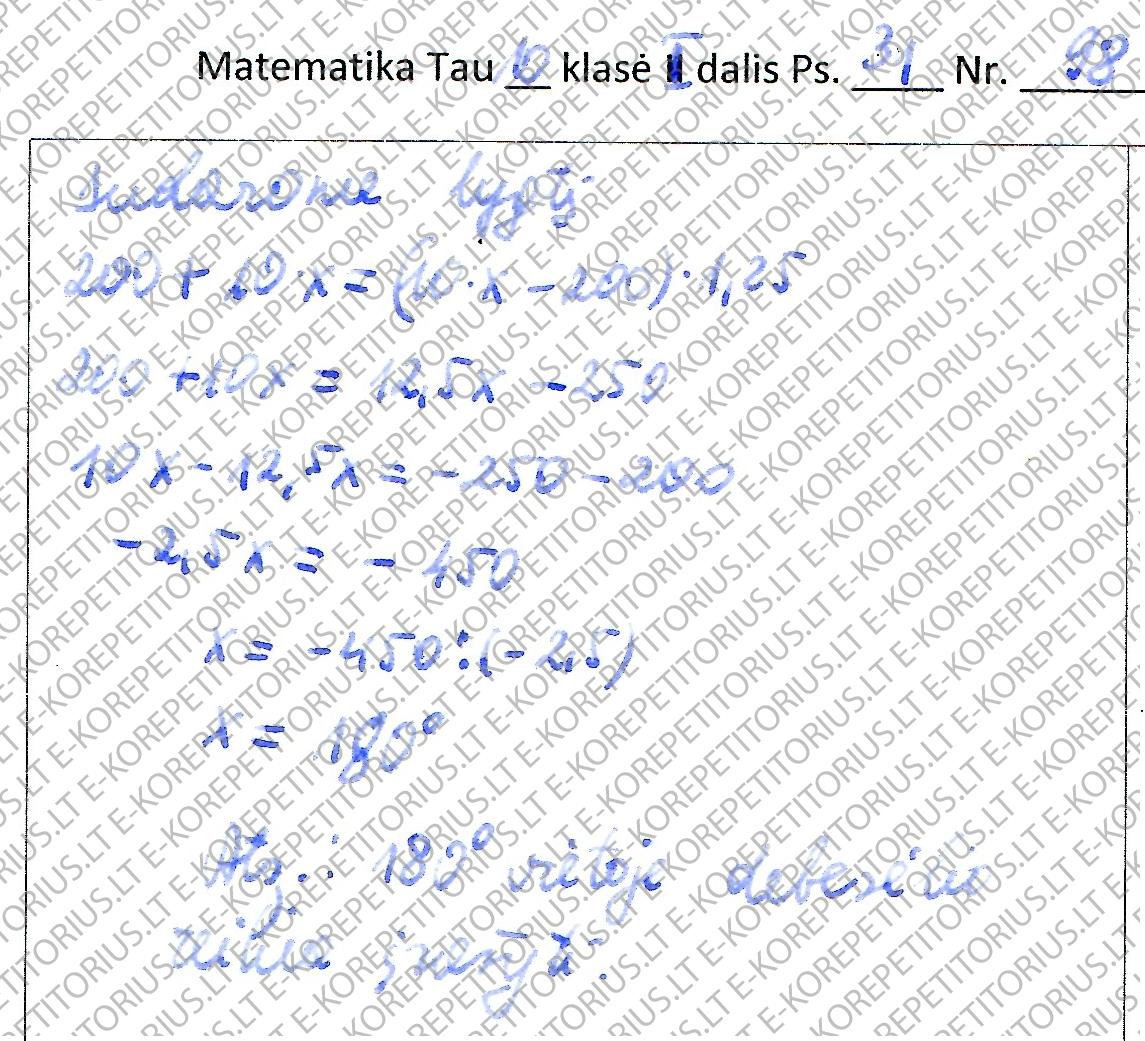 Matematika Tau 10 klasė I dalis Ps. 31 Nr. 98
sudarome lygtį
200 + 10·x = (10·x - 200)·1,25
200 + 10x = 12,5x - 250
10x - 12,5x = -250 - 200
-2,5x = - 450
x = -450:(-2,5)
x = 180°
Ats.: 180° vietoje debesėlio
reikia įrašyti.
E-KOREPETITORIUS.LT